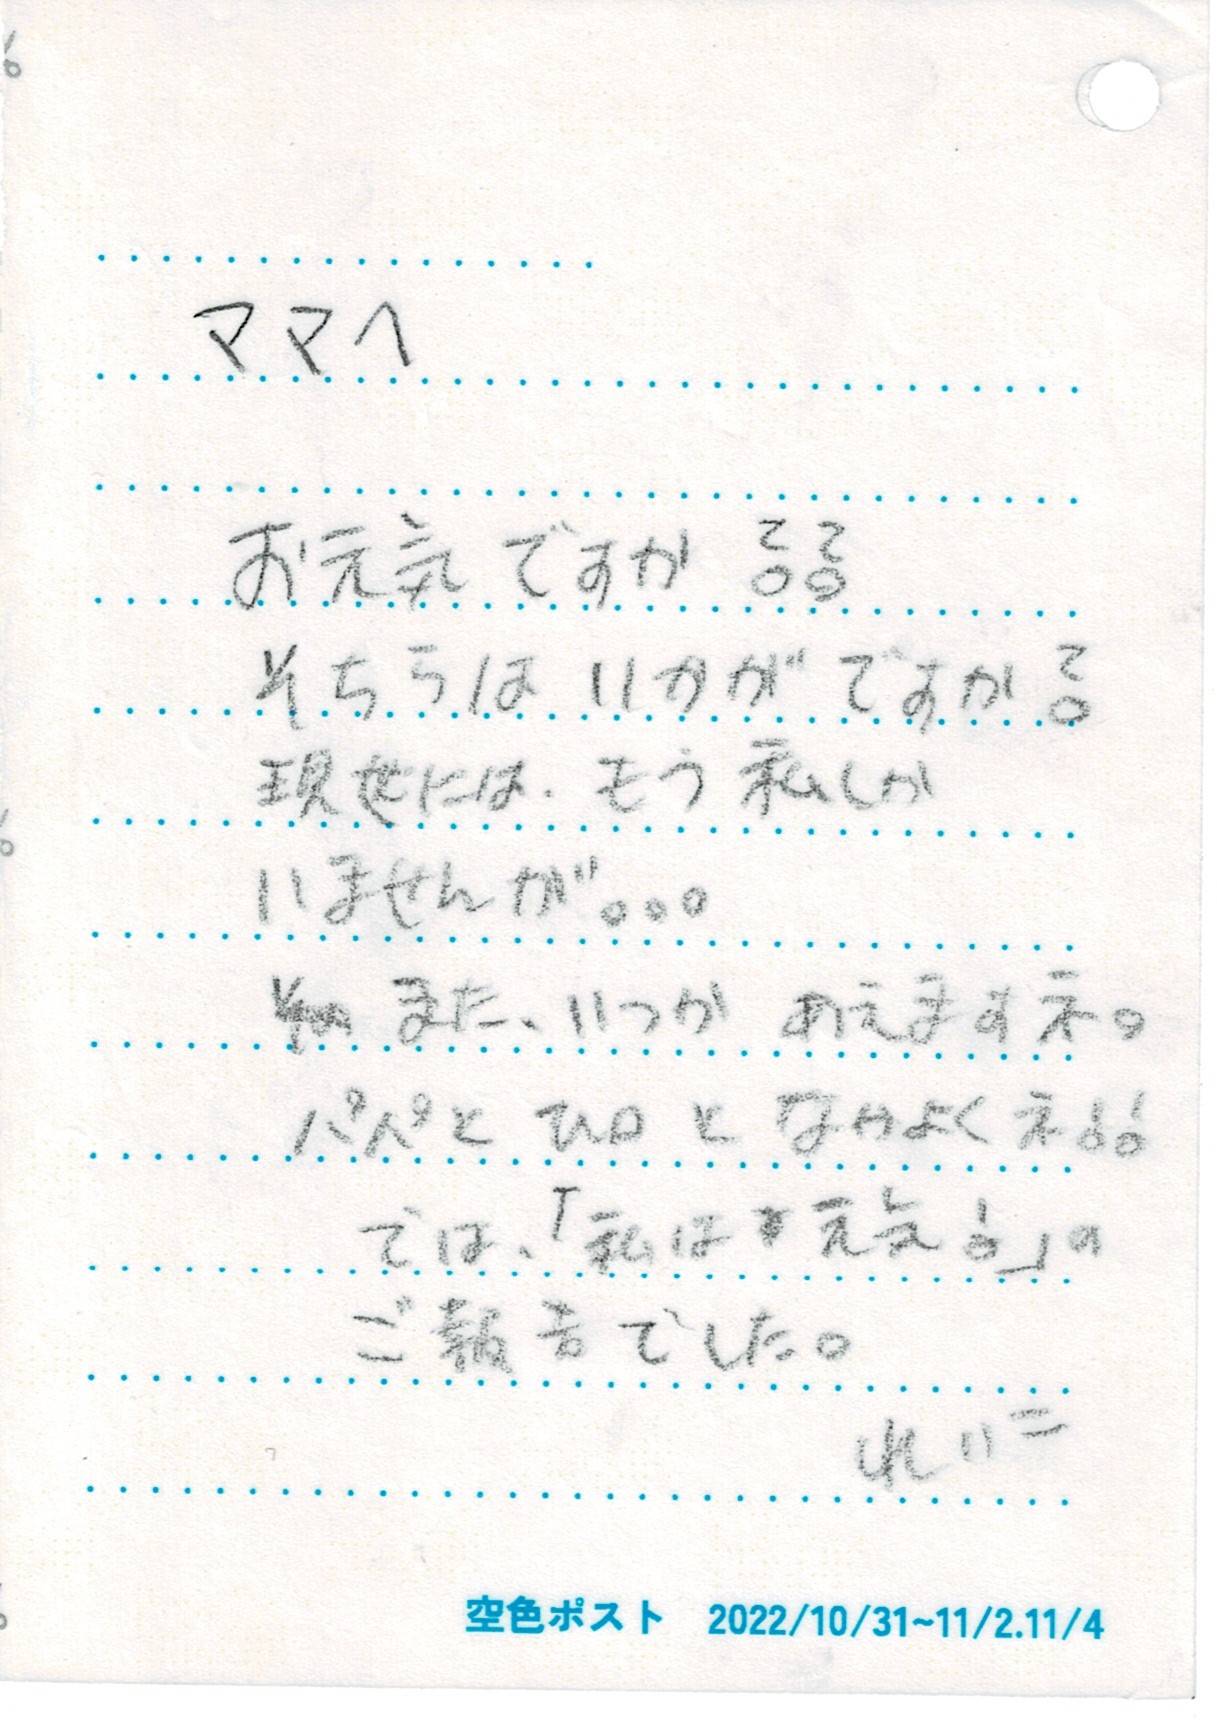 ママへ
お元気ですか??
そちらはいかがですか?
現世には、もう私しか
いませんが。。。
また、いつか あえますネ。
パパと ひロ と なかよくネ!!
では、「私は 元気!」の
ご報告でした。
れい二
空色ポスト 2022/10/31~11/2.11/4